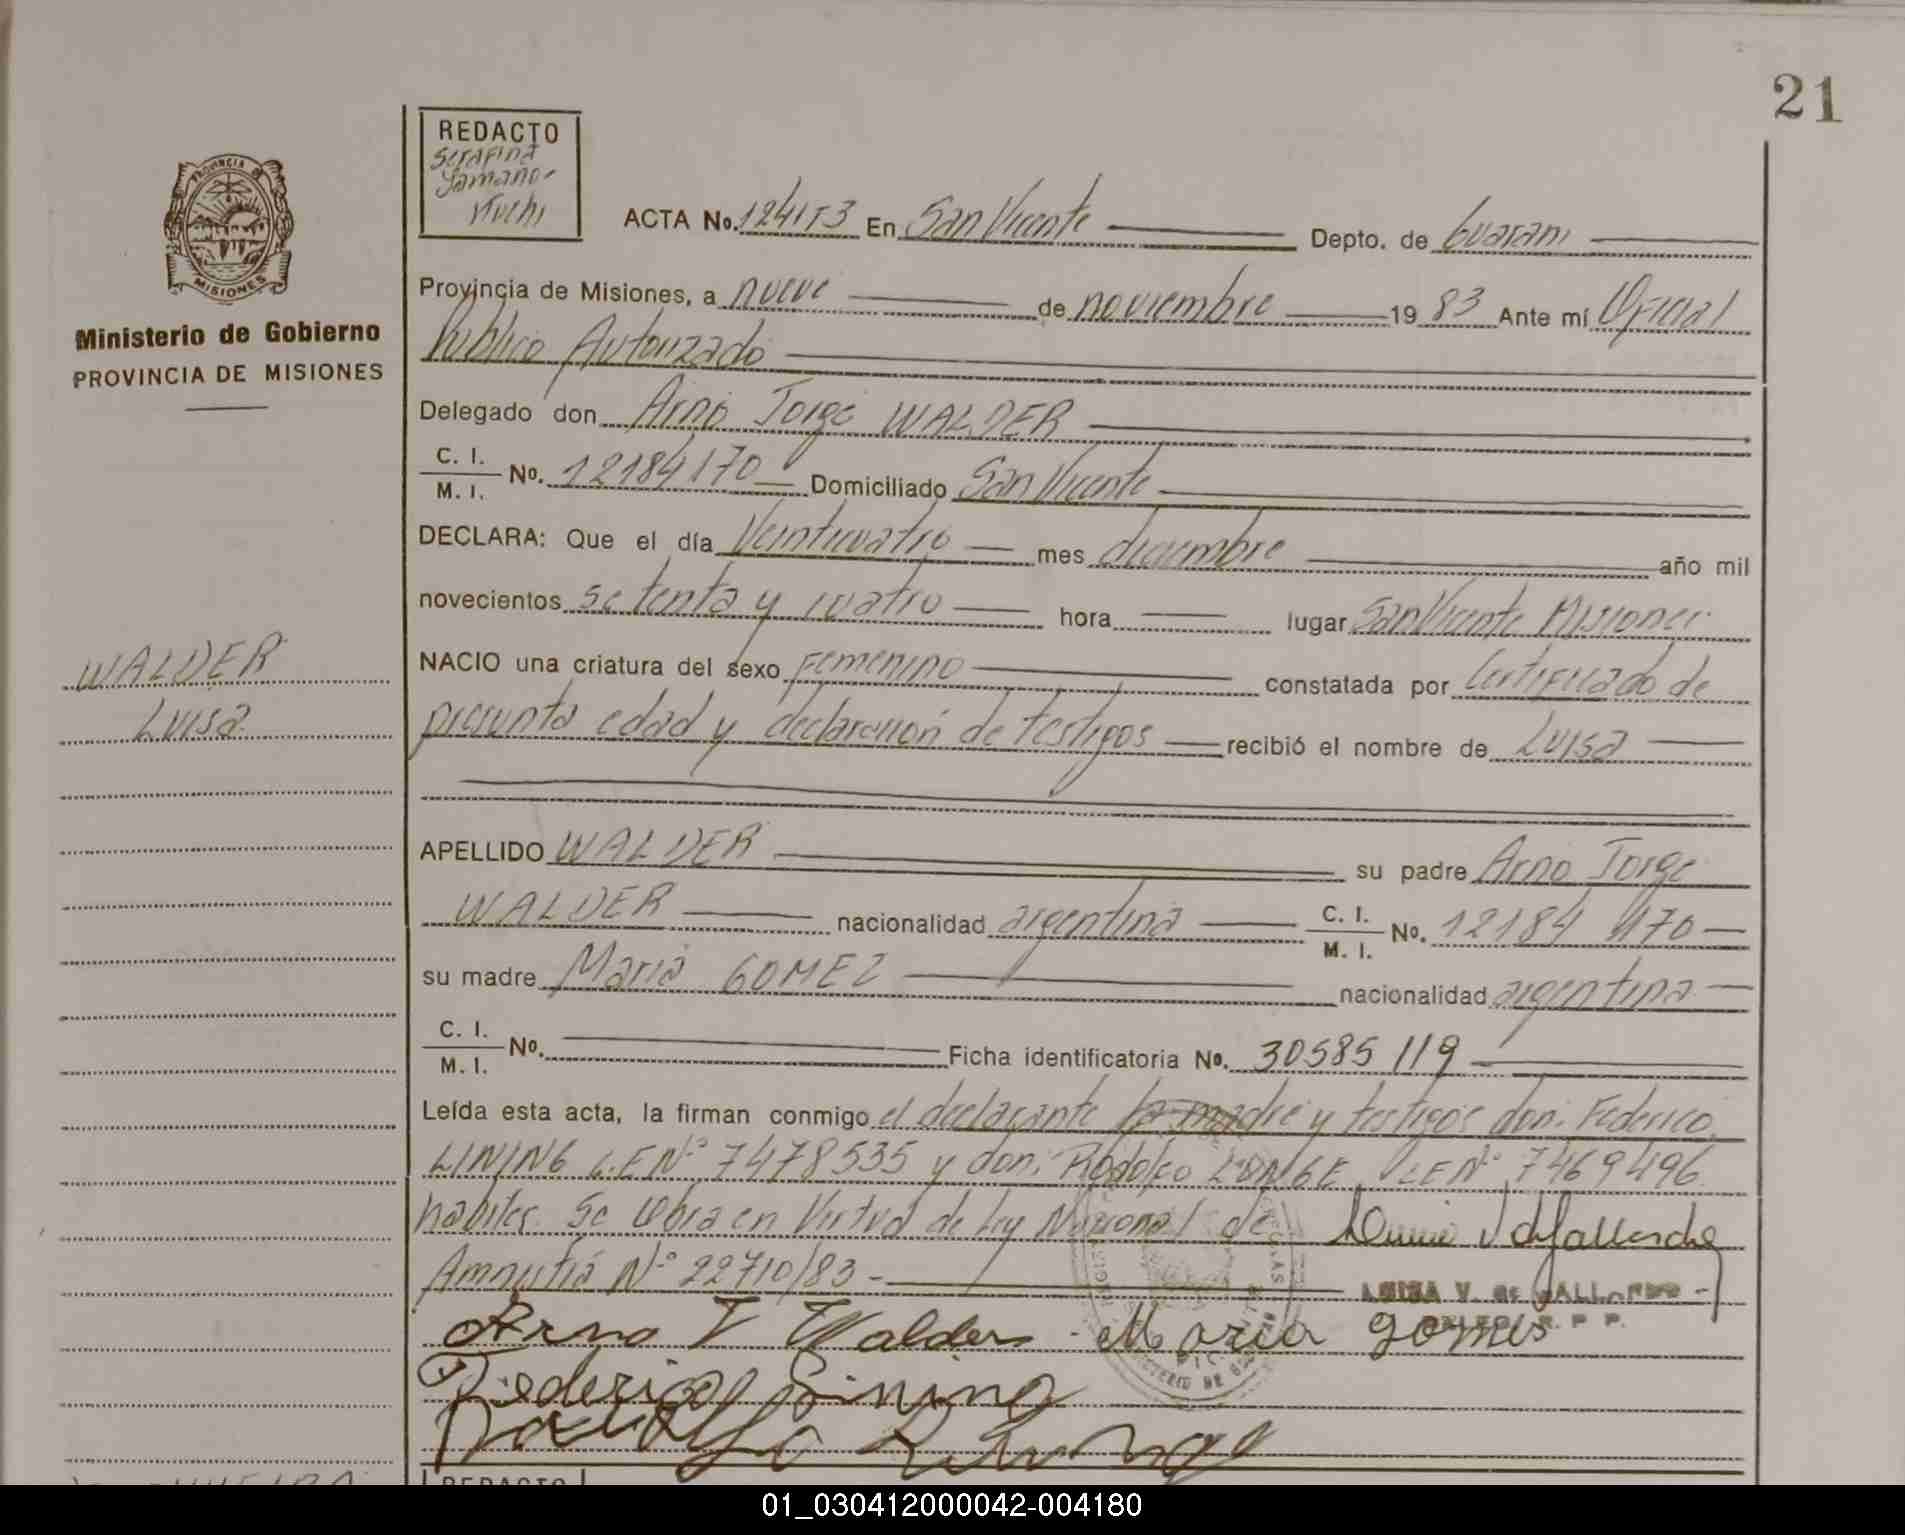 21
REDACTO
Serafina
Yamaño-
Kuchi
PROVINCIA
MISIONES
Ministerio de Gobierno
PROVINCIA DE MISIONES
WALDER
Luisa
ACTA No. En San Vicente Depto. de Guarani
Provincia de Misiones, a nueve de noviembre 1983 Ante mí Oficial
Público Autorizado
Delegado don Arno Jorge WALDER
C. I.
M. I. No. 12184170 Domiciliado San Vicente
DECLARA: Que el día Veinticuatro mes diciembre año mil
novecientos setenta y cuatro hora lugar San Vicente Misiones
NACIO una criatura del sexo Femenino constatada por Certificado de
presunta edad y declaración de testigos recibió el nombre de Luisa
APELLIDO WALDER su padre Arno Jorge
WALDER nacionalidad argentina C. I. M. I. No. 12184 170
su madre Maria GOMEZ nacionalidad argentina
C. I.
M. I. No. Ficha identificatoria No. 30585119
Leída esta acta, la firman conmigo el declarante la madre y testigos don: Federico
LINING L.E Nº 7478535 y don: Rodolfo LE Nº 7469496
habiles. Se labra en Virtud de Ley Nacional de
Amnistía Nº 22710/83 -
LUISA V. de
Arno J Walder - Maria Gomes
Federico Lining
REDACTO
01_030412000042-004180